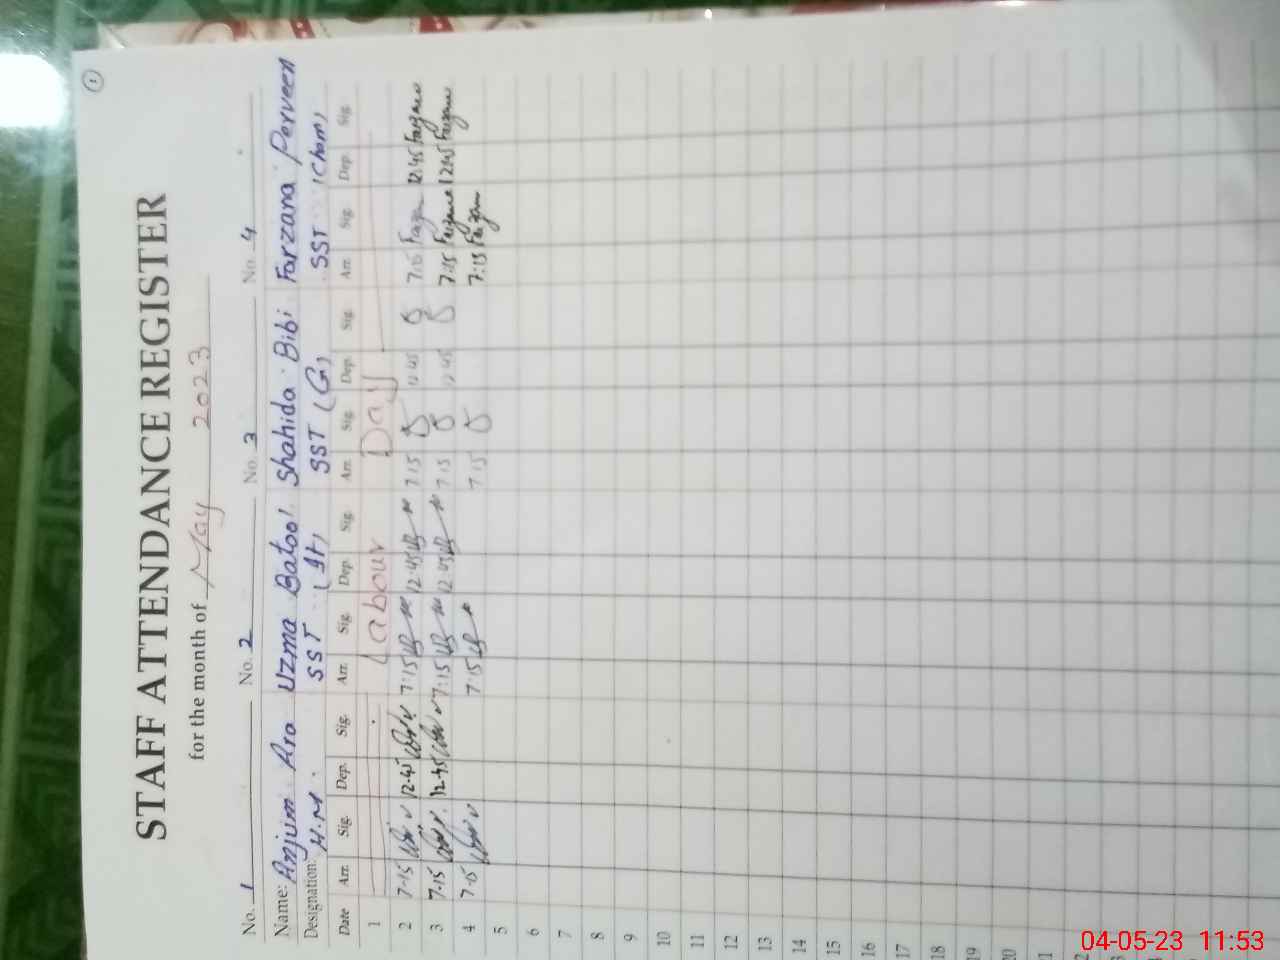 1
STAFF ATTENDANCE REGISTER
for the month of May 2023
No. 1 No. 2 No. 3 No. 4
Name: Anjum Ara Uzma Batool Shahida Bibi Farzana Perveen
Designation: H.M SST SST (G) SST (Chem)
Date Arr. Sig. Dep. Sig. Arr. Sig. Dep. Sig. Arr. Sig. Dep. Sig. Arr. Sig. Dep. Sig.
1 Labour Day
2 7.15 12.45 7:15 12.45 7 15 12 45 7.15 12.45
3 7.15 12.45 7:15 12.45 7 15 12 45 7:15 12.45
4 7.15 7.15 7 15 7:15
5
6
7
8
9
10
11
12
13
14
15
16
17
18
19
20
04-05-23 11:53